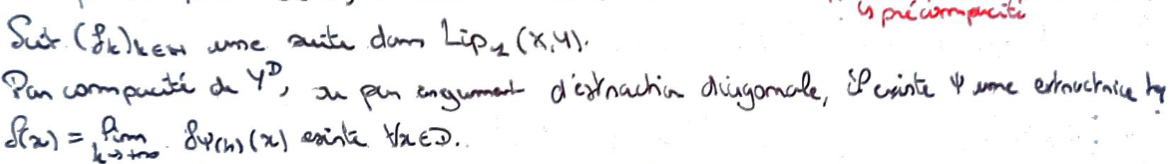 ↳ précompacité
Soit (f_k)_{k∈ℕ} une suite dans Lip_1(X,Y).
Par compacité de Y^D, ou par argument d'extraction diagonale, il existe Ψ une extractrice tq
f(x) = lim_{k→+∞} f_{Ψ(k)}(x) existe ∀x∈D.